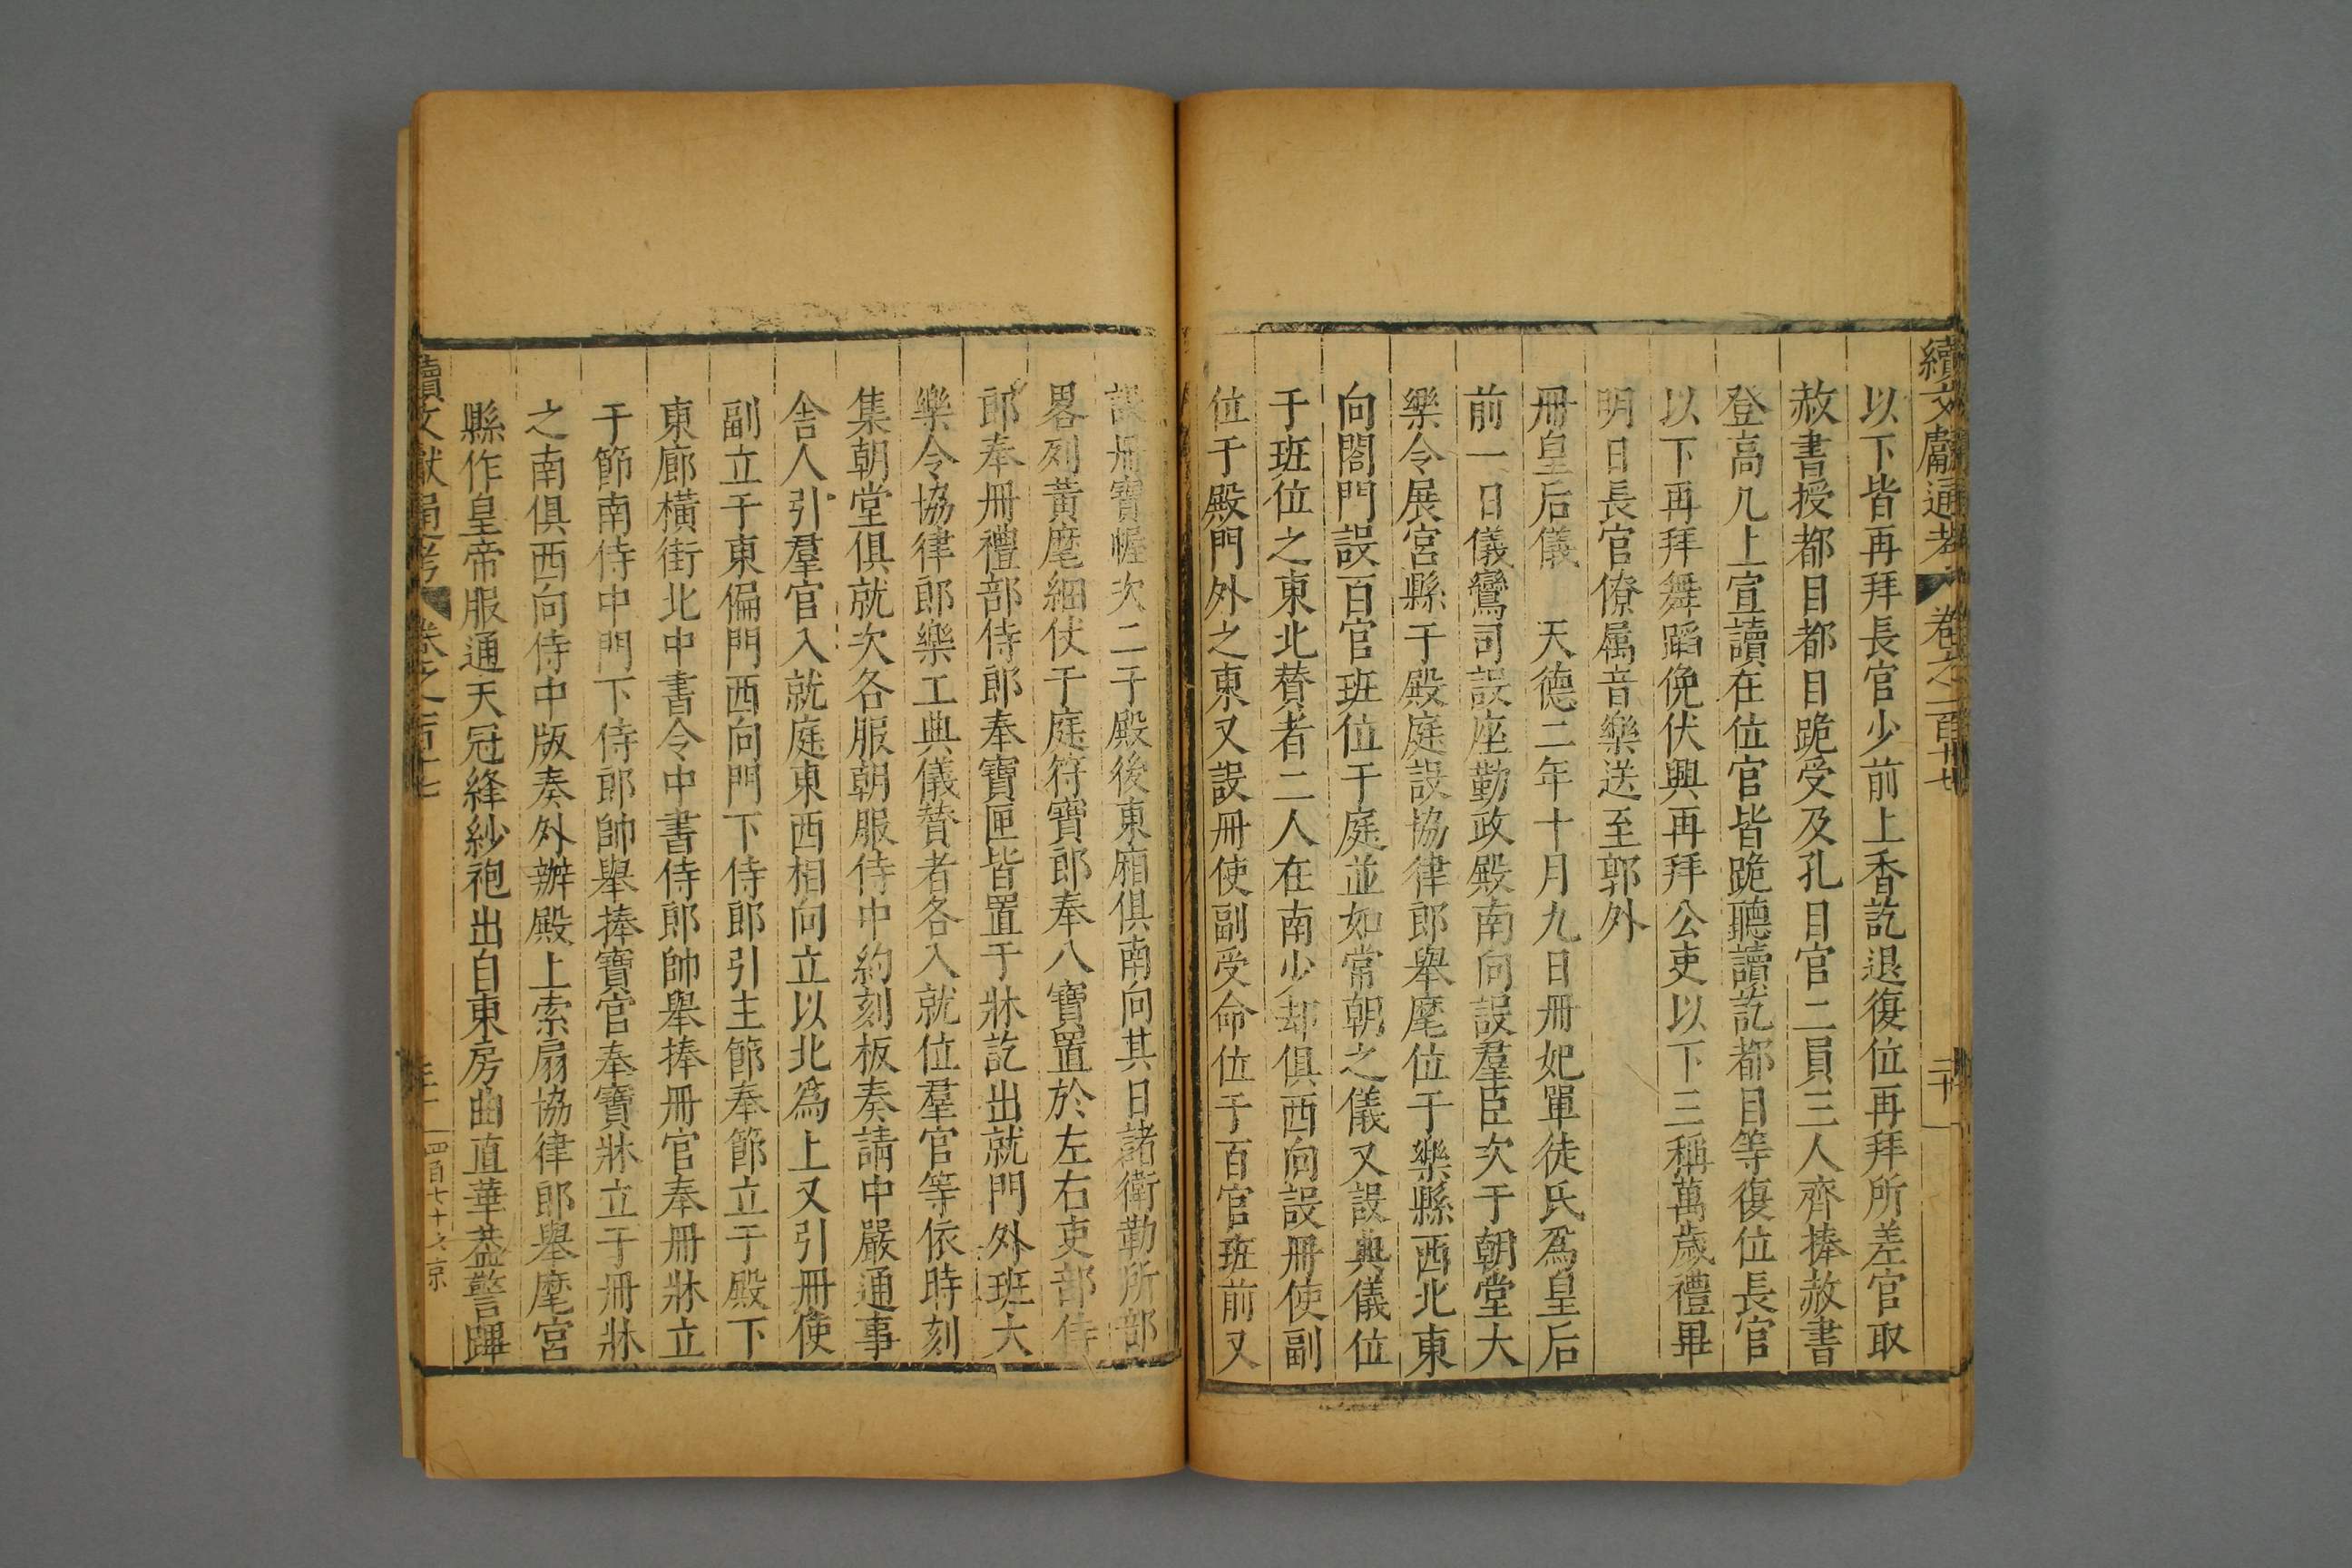 續文獻通考 卷之一百十七 二十
以下皆再拜長官少前上香訖退復位再拜所差官取
赦書授都目都目跪受及孔目官二員三人齊捧赦書
登高几上宣讀在位官皆跪聽讀訖都目等復位長官
以下再拜舞蹈俛伏興再拜公吏以下三稱萬歲禮畢
明日長官僚属音樂送至郭外
冊皇后儀 天德二年十月九日冊妃單徒氏爲皇后
前一日儀鸞司設座勤政殿南向設羣臣次于朝堂大
樂令展宮縣于殿庭設協律郎舉麾位于樂縣西北東
向閤門設百官班位于庭並如常朝之儀又設典儀位
于班位之東北賛者二人在南少却俱西向設冊使副
位于殿門外之東又設冊使副受命位于百官班前又
設冊寶幄次二于殿後東廂俱南向其日諸衛勒所部
畧列黃麾細仗于庭符寶郎奉八寶置於左右吏部侍
郎奉冊禮部侍郎奉寶匣皆置于牀訖出就門外班大
樂令協律郎樂工典儀賛者各入就位羣官等依時刻
集朝堂俱就次各服朝服侍中約刻板奏請中嚴通事
舍人引羣官入就庭東西相向立以北爲上又引冊使
副立于東偏門西向門下侍郎引主節奉節立于殿下
東廊橫街北中書令中書侍郎帥舉捧冊官奉冊牀立
于節南侍中門下侍郎帥舉捧寶官奉寶牀立于冊牀
之南俱西向侍中版奏外辦殿上索扇協律郎舉麾宮
縣作皇帝服通天冠絳紗袍出自東房曲直華葢警蹕
續文獻通考 卷之一百十七